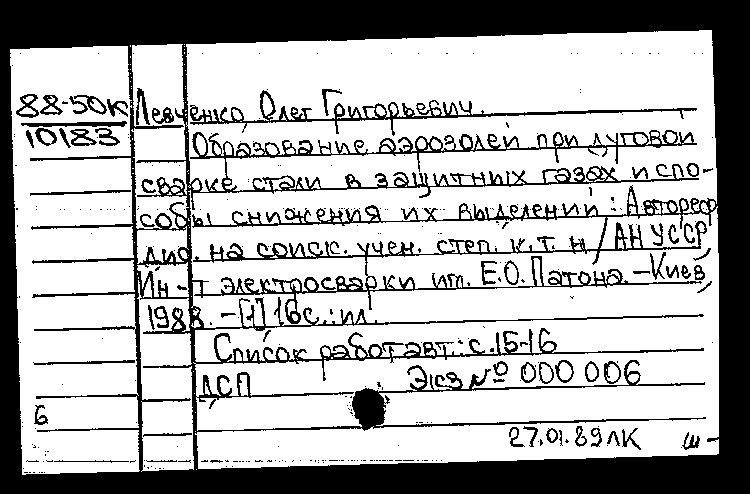 88-50К
10183
Левченко Олег Григорьевич.
Образование аэрозолей при дуговой
сварке стали в защитных газах и спо-
собы снижения их выделений: Автореф.
дис. на соиск. учен. степ. к. т. н / АН УССР,
Ин-т электросварки им. Е.О. Патона. – Киев,
1988. – [1] 16 с.: ил.
Список работ авт.: с. 15-16
ДСП Экз № 000 006
6
27.01.89 ЛК ш-